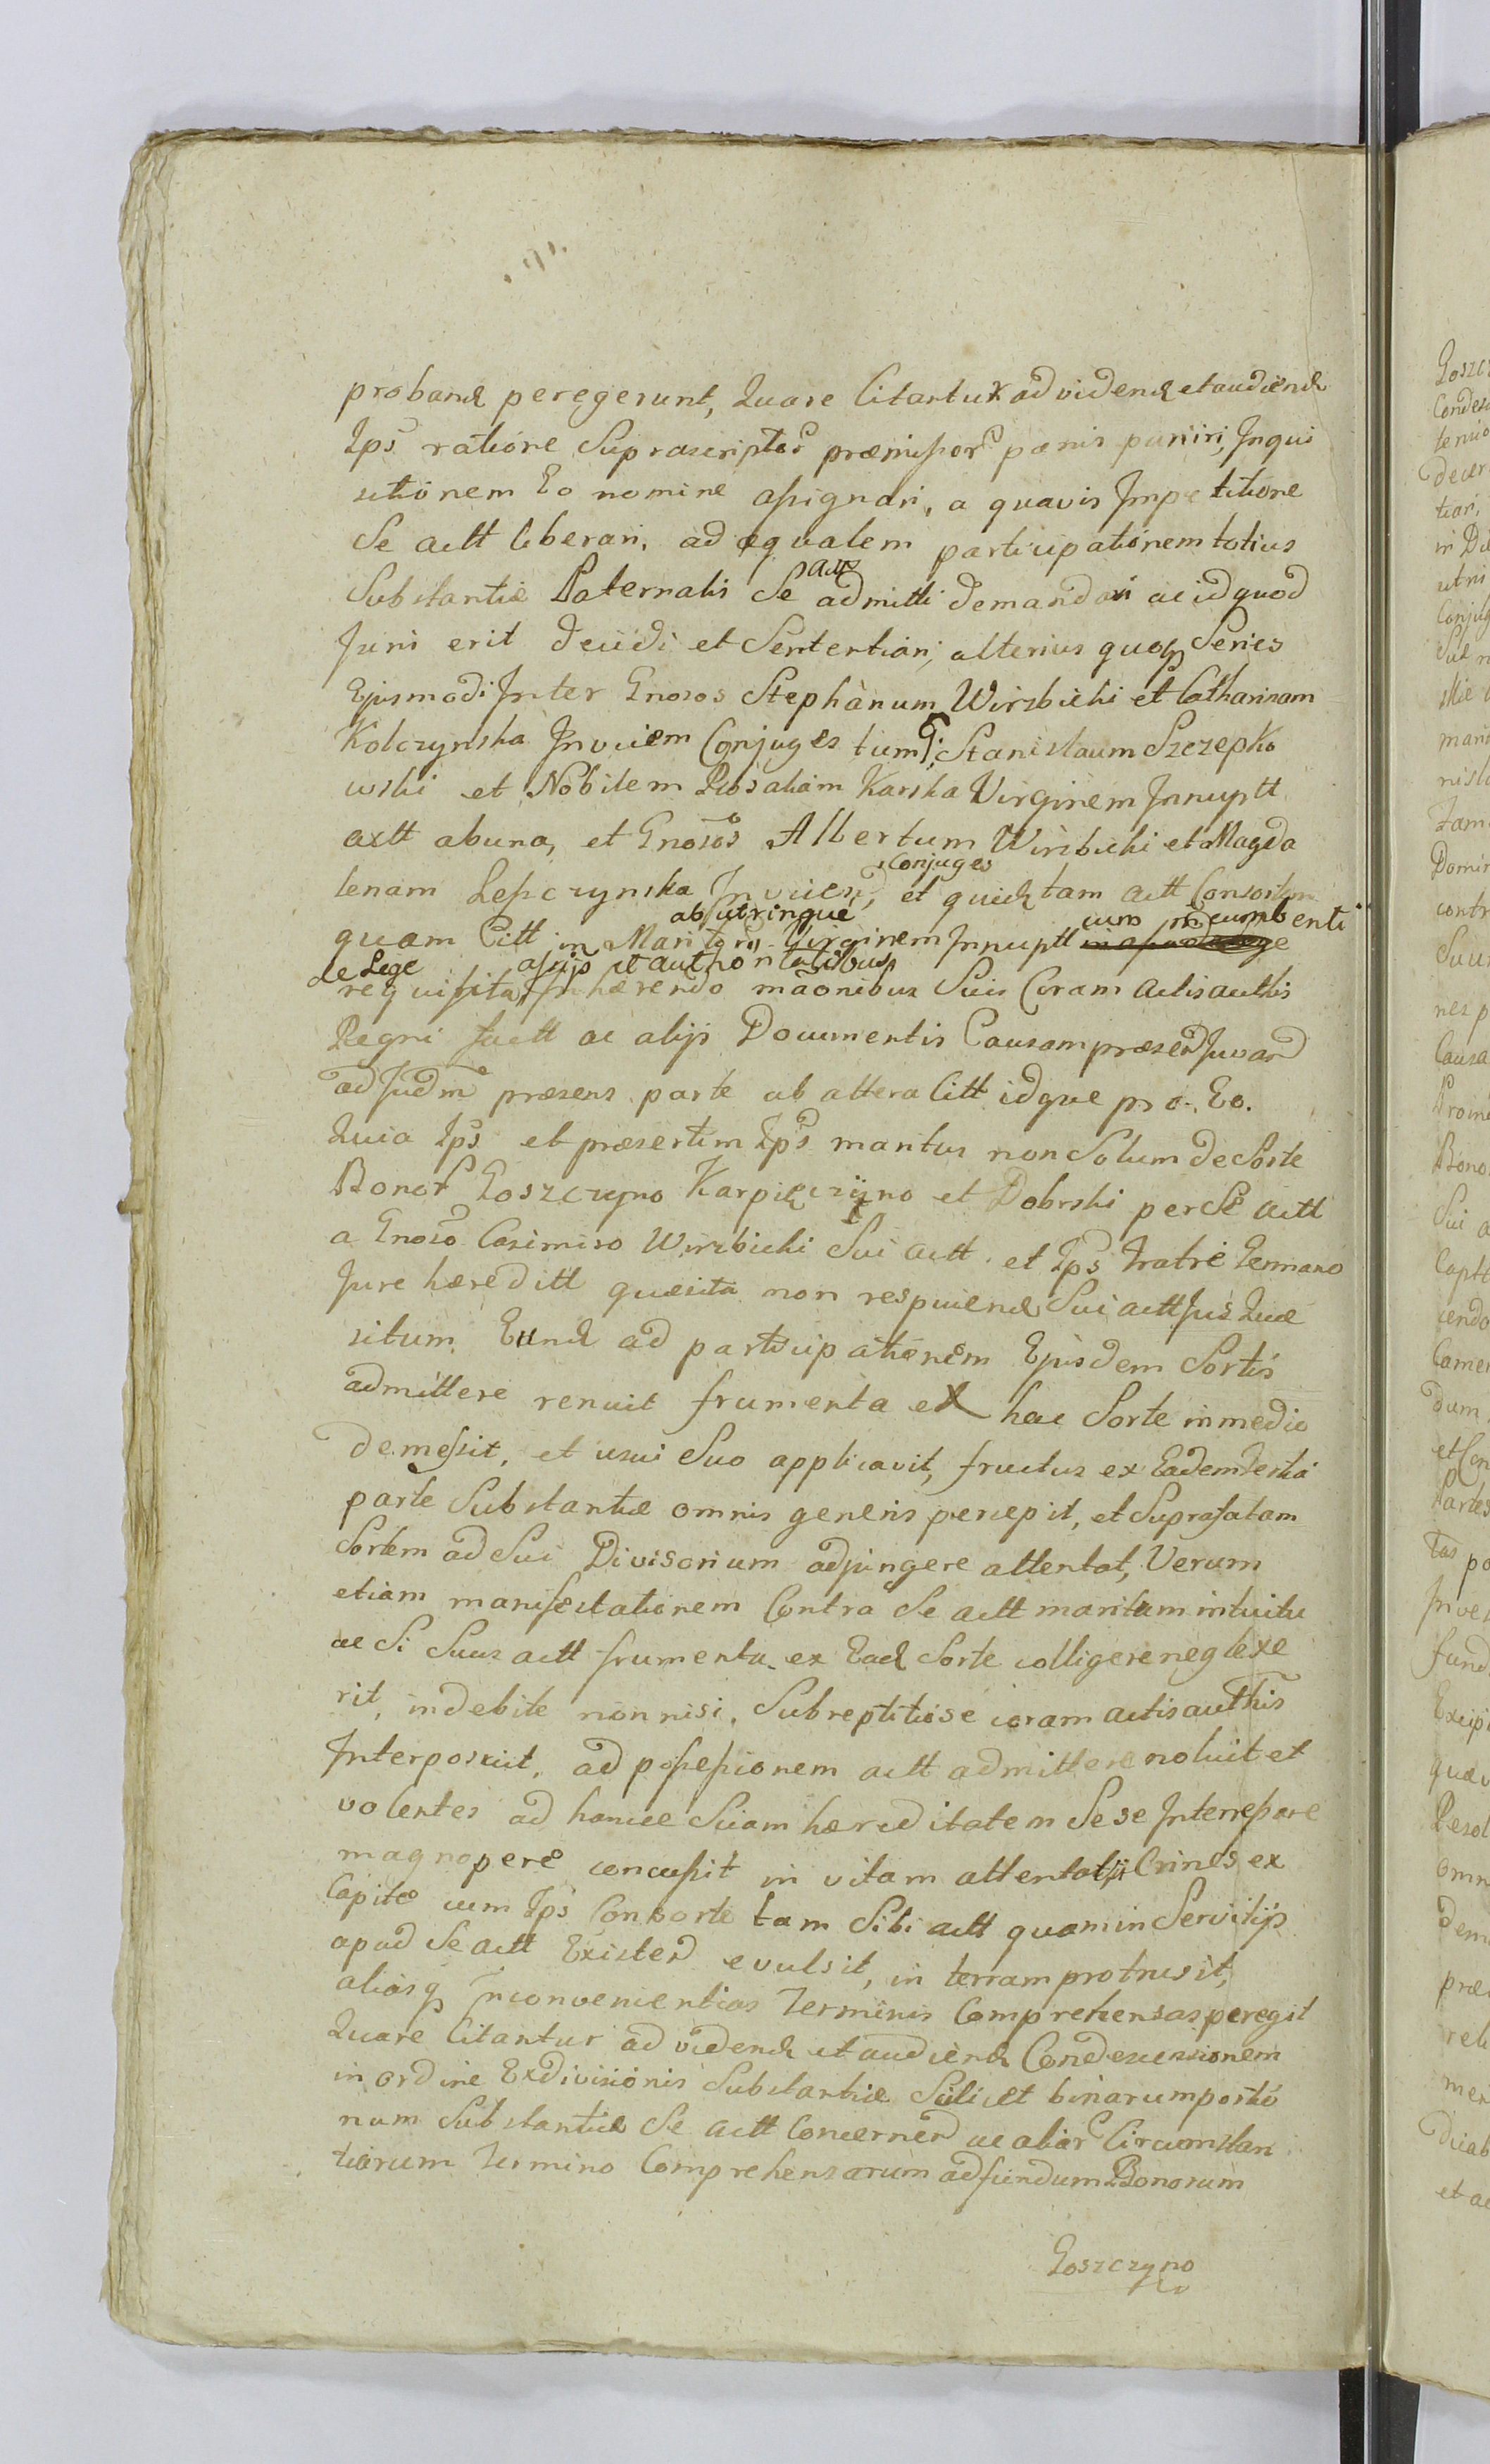 proband peregerunt, Quare Citantur ad vidend et audiend
Ips ratione Suprascriptor præmissor pænis puniri, Inqui
sitionem Eo nomine assignari, a quavis Impetitione
Se actt liberari, ad æqualem participationem totius
Substantiæ Paternalis Se actt admitti demandari ac id quod
Juris erit decidi et Sententiari, alterius quoq Series
Ejusmodi Inter Gnosos Stephanum Wirzbicki et Catharinam
Kolczynska Invicem Conjuges tum G Stanislaum Szczepko
wski et Nobilem Rosaliam Karska Virginem Innuptt
actt ab una, et Gnosos Albertum Wirzbicki et Magda
lenam Lepczynska Invicem Conjuges, et quid tam actt Consortem
quam Citt in Maritos ab utrinque Virginem Innuptt cum incumbenti
de Lege requisita assis et authoritatibus Inhærendo mãonibus Suis Coram Actis authis
Regni factt ac alijs Documentis Causam præsen Juvand
ad Judm præsens parte ab altera Citt idque pro Eo.
Quia Ips et præsertim Ips maritus non Solum de Sorte
Bonor Goszczyno Karpie czyno et Dobrski per Se actt
a Gnoso Casimiro Wirzbicki Sui actt et Ips Fratre Germano
Jure hæreditt quæsita non respiciend Sui actt Jus Quæ
situm, Eund ad participationem Ejusdem Sortis
admittere renuit frumenta ex hac Sorte in medio
demessit, et usui Suo applicavit, fructus ex Eadem tertia
parte Substantiæ omnis generis percepit, et Suprafatam
Sortem ad Sui Divisorium adjungere attentat, Verum
etiam manifestationem Contra Se actt maritum intuitu
ac Si Suus actt frumenta ex Ead Sorte colligere neglexe
rit, indebite non nisi Subreptitiose coram actis authis
Interposuit, ad possessionem actt admittere noluit et
volentes ad hancce Suam hæreditatem Sese Interessare
magnopere concussit in vitam attentavit Crines ex
Capite cum Ips Consorte tam Sibi actt quam in Servitijs
apud Se actt Existen evulsit, in terram protrusit,
aliasq Inconvenientias Terminis Comprehensas peregit
Quare Citantur ad vidend et audiend Condescensionem
in ordine Exdivisionis Substantiæ Scilicet binarum portio
num Substantiæ Se actt Concernen ac aliar Circumstan
tiarum Termino Comprehensarum ad fundum Bonorum
Goszczyno